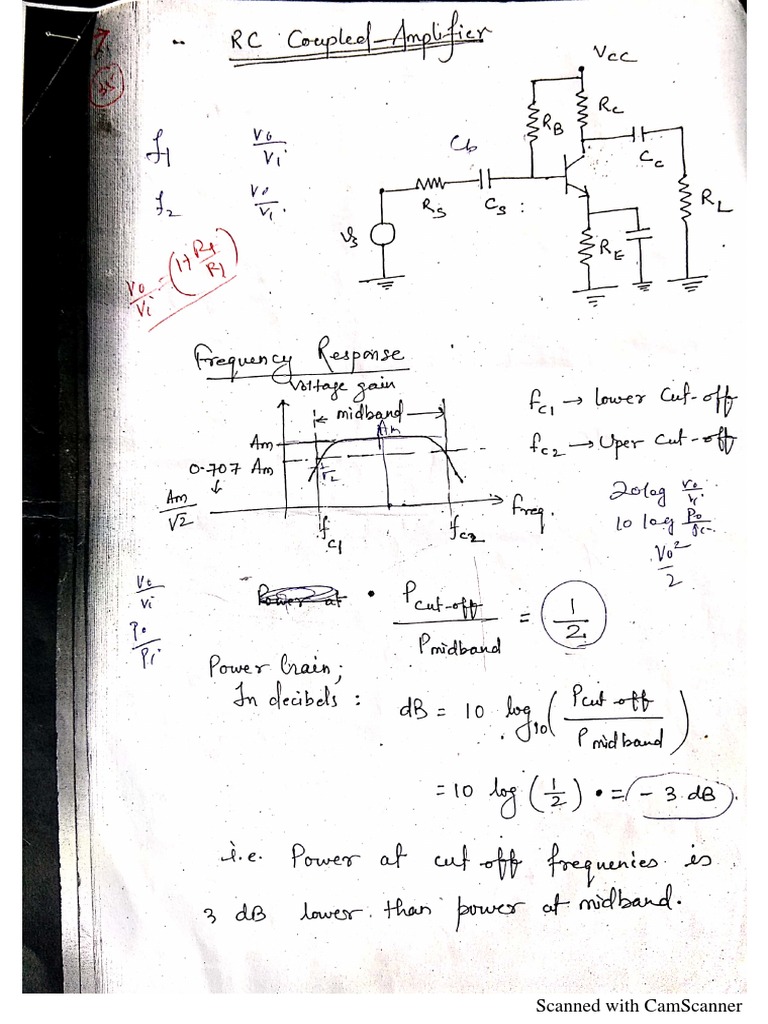 RC Coupled Amplifier
35
VCC
RB
RC
Cb
CC
f1 V0/V1
f2 V0/V1.
RS
CS :
RL
VS
RE
V0/Vi = (1+Rf/R1)
Frequency Response
Voltage gain
midband
Am
Am
0.707 Am
1/√2
Am/√2
freq.
fC1
fC2
fC1 → lower Cut-off
fC2 → Uper Cut-off
20 log V0/Vi
10 log P0
V0²/2
V0/Vi
P0/Pi
Power at • Pcut-off/Pmidband = 1/2
Power Gain;
In decibels : dB = 10 log10 (Pcut off/Pmidband)
= 10 log (1/2) = -3 dB.
i.e. Power at cut off frequenies is
3 dB lower than power at midband.
Scanned with CamScanner